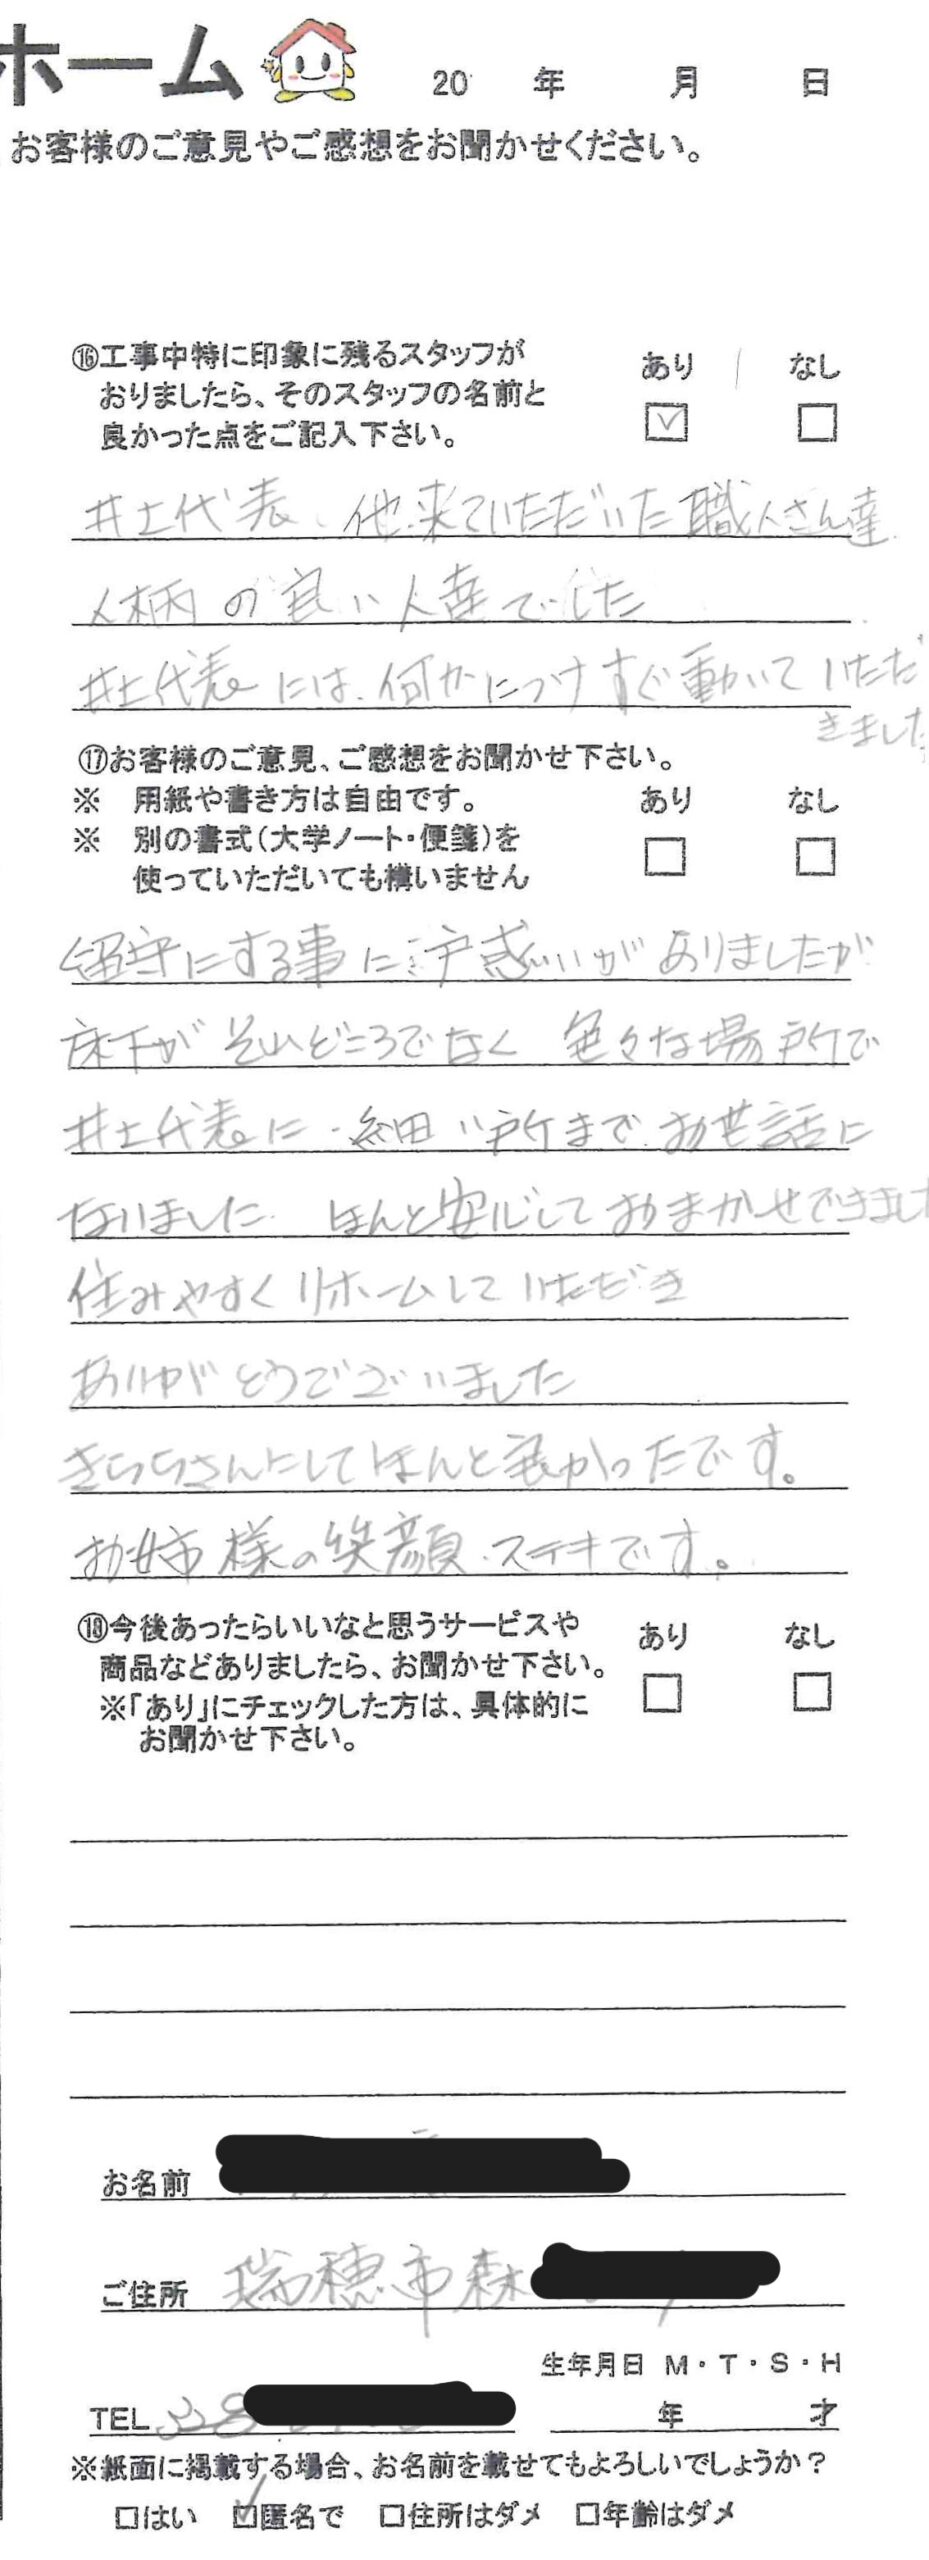 ホーム 20 年 月 日
お客様のご意見やご感想をお聞かせください。
⑯工事中特に印象に残るスタッフが
おりましたら、そのスタッフの名前と
良かった点をご記入下さい。
あり なし
井土代表、他来ていただいた職人さん達
人柄の良い人達でした
井土代表には、何かにつけすぐ動いていただ
きました
⑰お客様のご意見、ご感想をお聞かせ下さい。
※ 用紙や書き方は自由です。
あり なし
※ 別の書式(大学ノート・便箋)を
使っていただいても構いません
留守にする事に戸惑いがありましたが
床下がそれどころでなく 色々な場所で
井土代表に 細い所までお世話に
なりました ほんと安心しておまかせできました
住みやすくリホームしていただき
ありがとうございました
きららさんにしてほんと良かったです。
お姉様の笑顔 ステキです。
⑱今後あったらいいなと思うサービスや
商品などありましたら、お聞かせ下さい。
あり なし
※「あり」にチェックした方は、具体的に
お聞かせ下さい。
お名前
ご住所 瑞穂市森
生年月日 M・T・S・H
TEL 328
年 才
※紙面に掲載する場合、お名前を載せてもよろしいでしょうか?
□はい ☑匿名で □住所はダメ □年齢はダメ